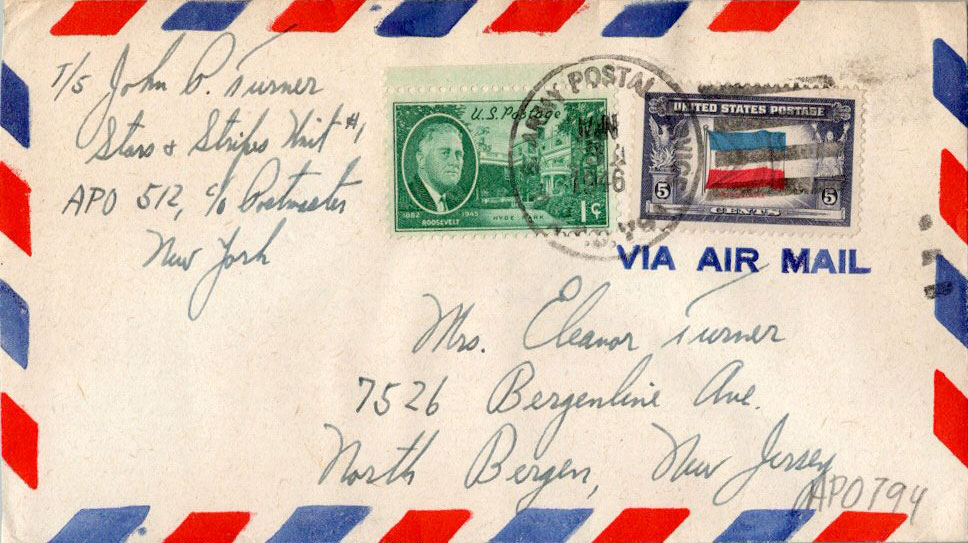 T/5 John P. Turner
Stars & Stripes Unit #1
APO 512, c/o Postmaster
New York
U.S. Postage
1882 1945
ROOSEVELT HYDE PARK
1¢
ARMY POSTAL
1946
UNITED STATES POSTAGE
5 5
CENTS
VIA AIR MAIL
Mrs. Eleanor Turner
7526 Bergenline Ave.
North Bergen, New Jersey
APO 794